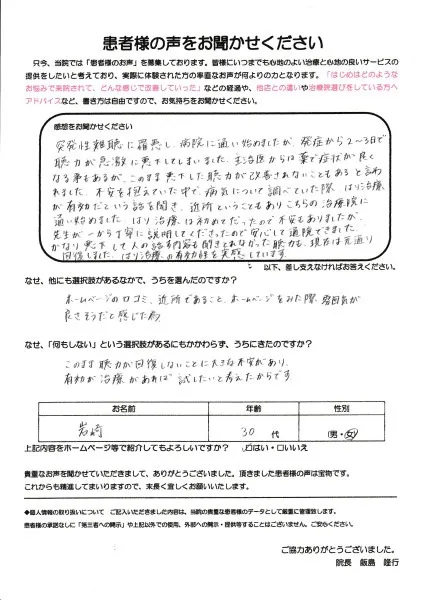 患者様の声をお聞かせください
只今、当院では「患者様のお声」を募集しております。皆様にいつまでも心地のよい治療と心地の良いサービスの
提供をしたいと考えており、実際に体験された方の率直なお声が何よりの力となります。「はじめはどのような
お悩みで来院されて、どんな感じで改善していった」などの経過や、他店との違いや治療院選びをしている方へ
アドバイスなど、書き方は自由ですので、お気持ちをお聞かせください。
感想をお聞かせください
突発性難聴に罹患し、病院に通い始めましたが、発症から2~3日で
聴力が急激に悪下してしまいました。主治医からは薬で症状が良く
なる事もあるが、このまま悪下した聴力が改善されないこともあると言わ
れました。不安を抱えていた中で、病気について調べていた際、はり治療
が有効だという話を聞き、近所ということもありこちらの治療院に
通い始めました。はり治療は初めてだったので不安もありましたが、
先生が一から丁寧に説明してくださったので安心して通院できました。
かなり悪下して人の話す内容も聞きとれなかった聴力も、現在は元通り
回復しました。はり治療の有効性を実感しています。
以下、差し支えなければお答えください。
なぜ、他にも選択肢があるなかで、うちを選んだのですか?
ホームページの口コミ、近所であること、ホームページをみた際、雰囲気が
良さそうだと感じた為
なぜ、「何もしない」という選択肢があるにもかかわらず、うちにきたのですか?
このまま聴力が回復しないことに大きな不安があり、
有効が治療があれば試したいと考えたからです
お名前 年齢 性別
岩崎 30 代 (男・女)
上記内容をホームページ等で紹介してもよろしいですか? ☑はい・□いいえ
貴重なお声を聞かせていただきまして、ありがとうございました。頂きました患者様の声は宝物です。
これからも精進してまいりますので、末長く宜しくお願いいたします。
◆個人情報の取り扱いについて ご記入いただきました内容は、当院の貴重な患者様のデータとして厳重に管理致します。
患者様の承諾なしに「第三者への開示」や上記以外での使用、外部への開示・提供等することはございません。ご安心ください。
ご協力ありがとうございました。
院長 飯島 隆行